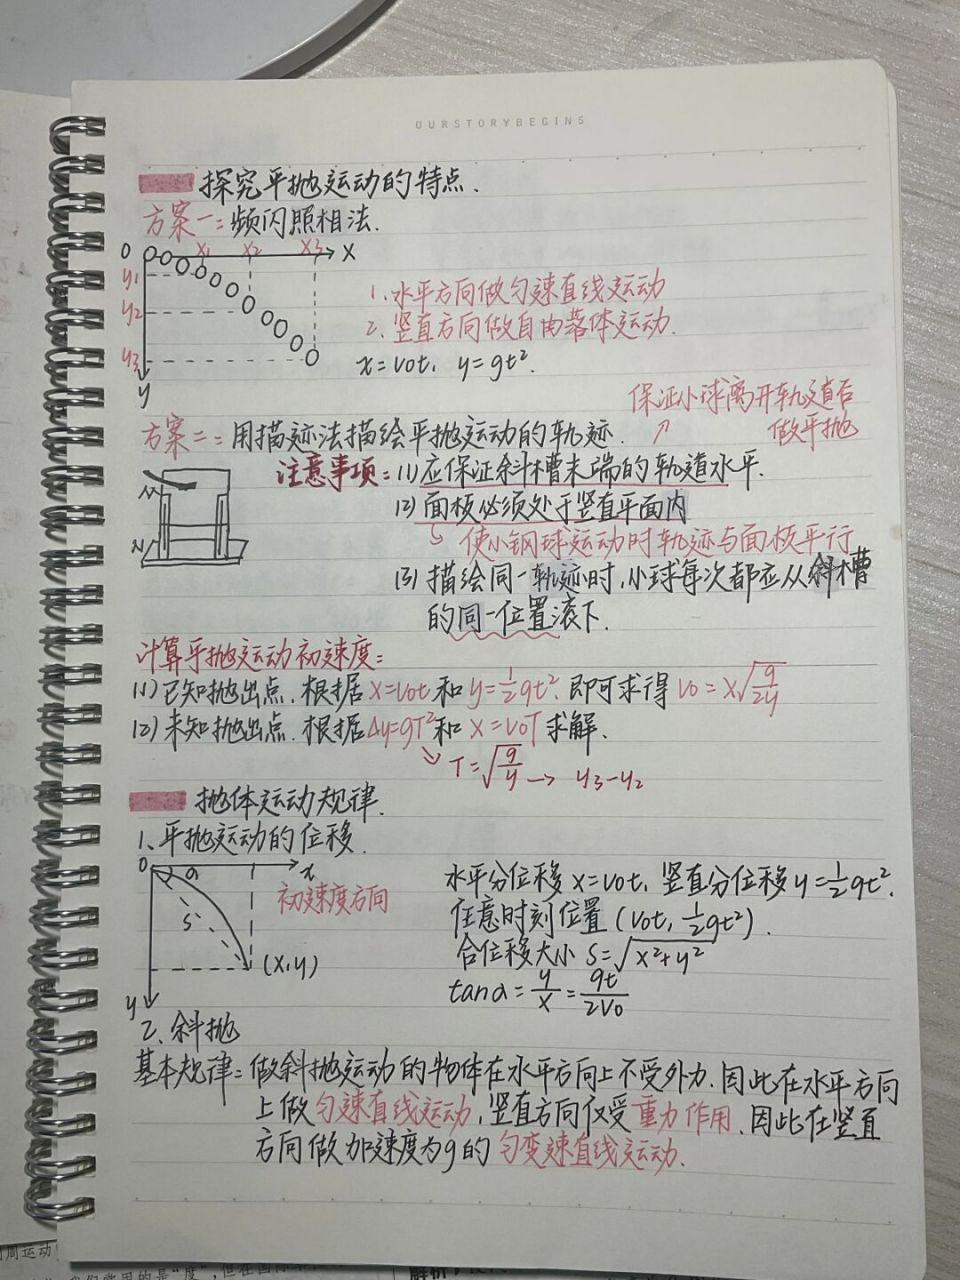 OURSTORYBEGINS
探究平抛运动的特点.
方案一:频闪照相法.
0 x1 x2 x3 x
y1
y2
y3
y
1.水平方向做匀速直线运动
2.竖直方向做自由落体运动.
x=v0t, y=gt².
保证小球离开轨道后
做平抛
方案二:用描迹法描绘平抛运动的轨迹.
注意事项:(1)应保证斜槽末端的轨道水平.
(2)面板必须处于竖直平面内
使小钢球运动时轨迹与面板平行
(3)描绘同一轨迹时,小球每次都应从斜槽
的同一位置滚下.
M
N
计算平抛运动初速度:
(1)已知抛出点.根据x=v0t和y=½gt².即可求得v0=x√(g/2y)
(2)未知抛出点.根据Δy=gT²和x=v0T求解.
T=√(g/y)→ y3-y2
抛体运动规律.
1、平抛运动的位移.
0 α x
初速度方向
S
(x,y)
y
水平分位移x=v0t,竖直分位移y=½gt².
任意时刻位置(v0t,½gt²).
合位移大小S=√(x²+y²)
tanα=y/x=gt/2v0
2、斜抛
基本规律:做斜抛运动的物体在水平方向上不受外力.因此在水平方向
上做匀速直线运动,竖直方向仅受重力作用.因此在竖直
方向做加速度为g的匀变速直线运动.